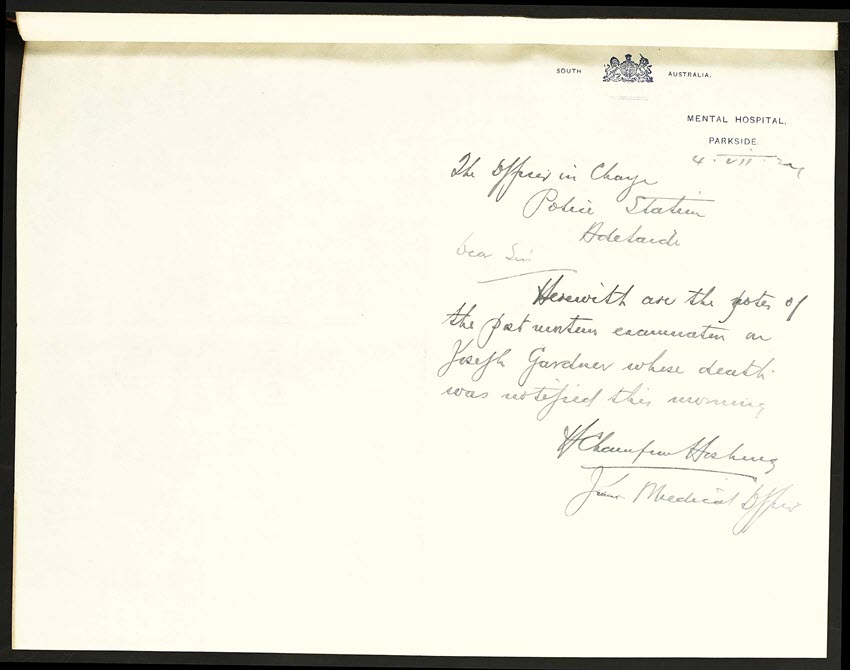 SOUTH AUSTRALIA.
MENTAL HOSPITAL,
PARKSIDE.
4. VII.
The Officer in Charge
Police Station
Adelaide
Dear Sir
Herewith are the notes of
the post mortem examination on
Joseph Gardner whose death
was notified this morning
H Champion Hosking
Medical Officer